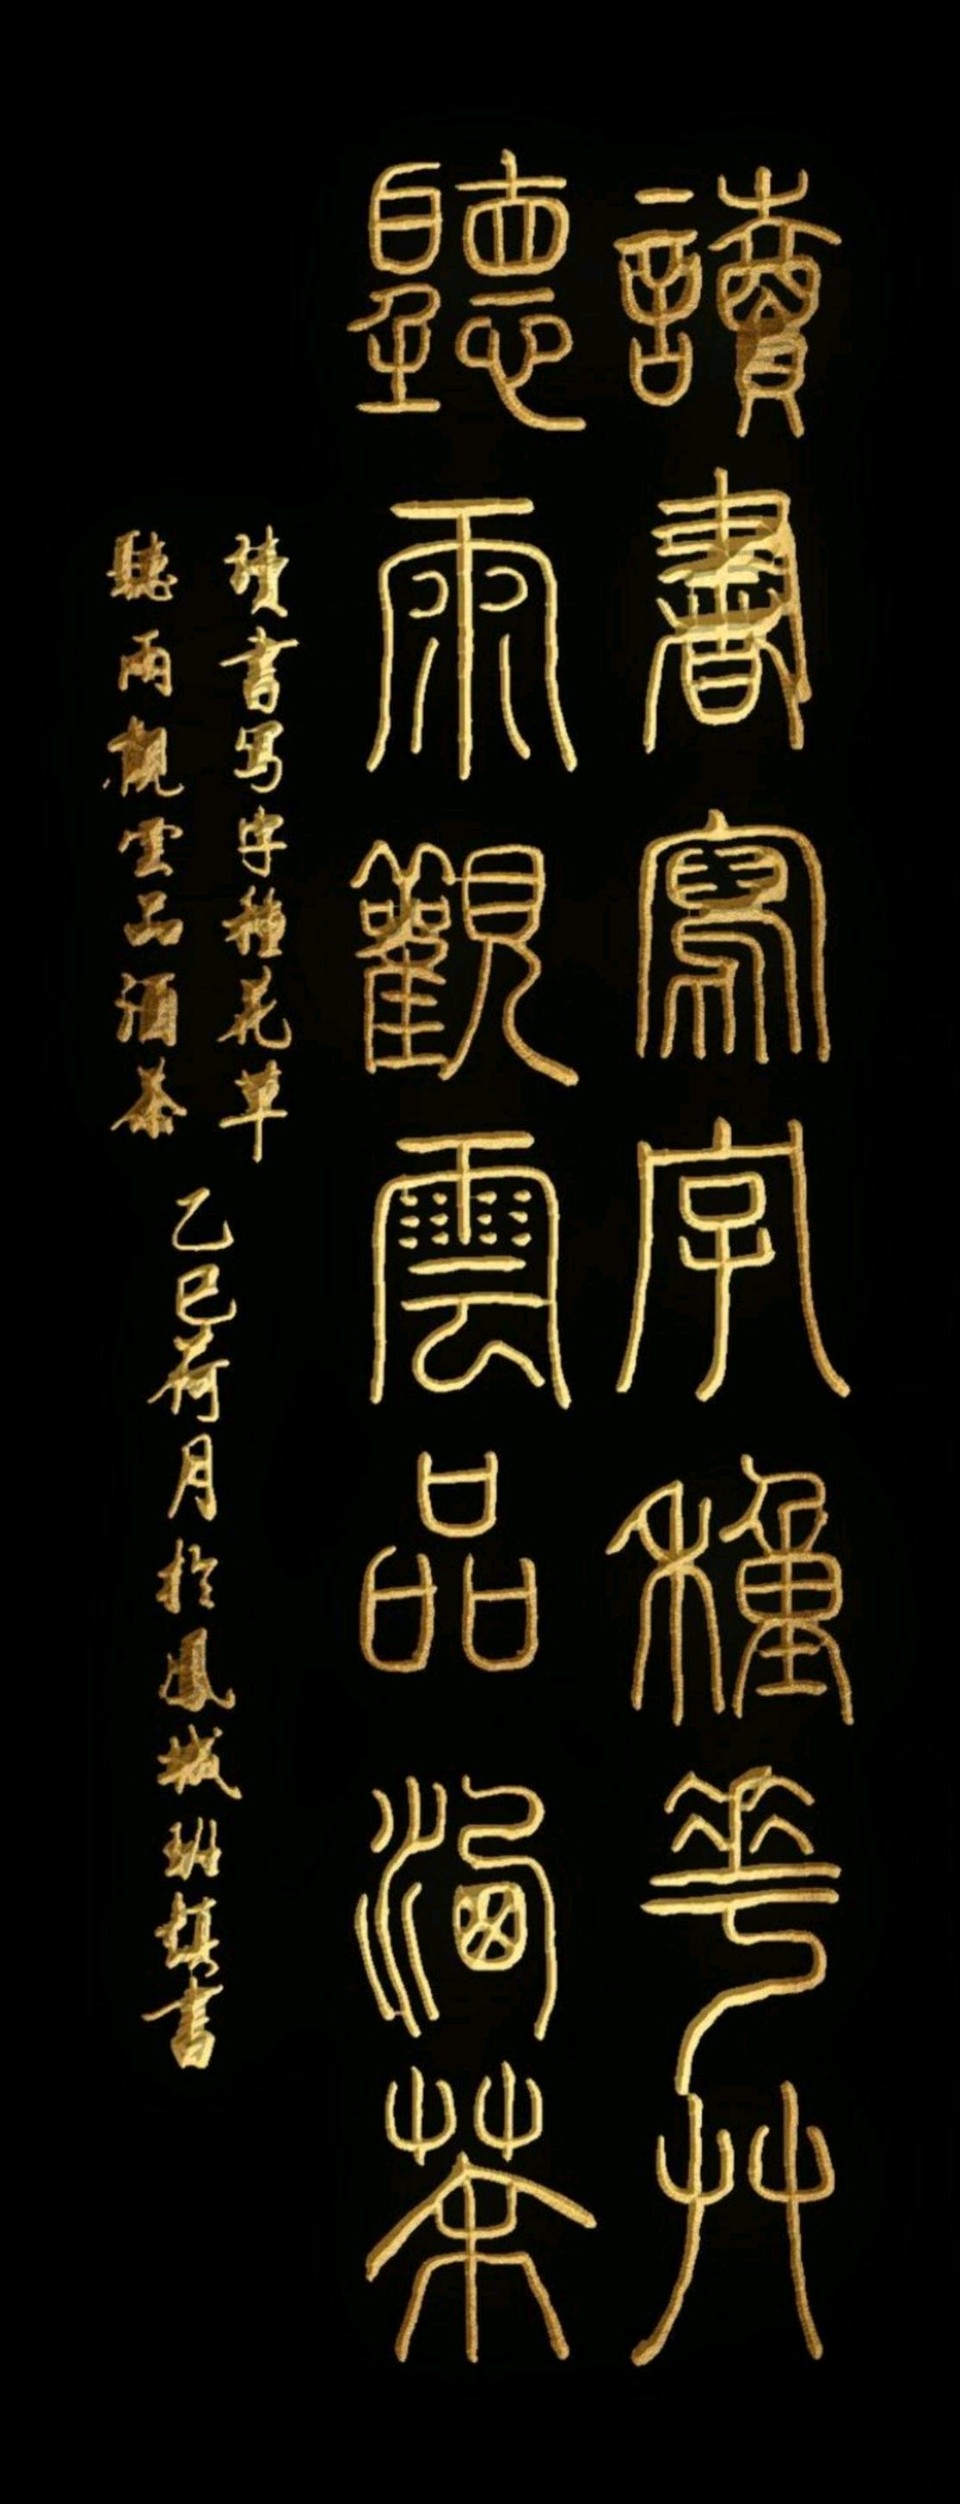 讀書寫字種華艸
聽雨觀雲品酒茶
讀書写字種花草
聽雨觀雲品酒茶
乙巳荷月於鳳城書